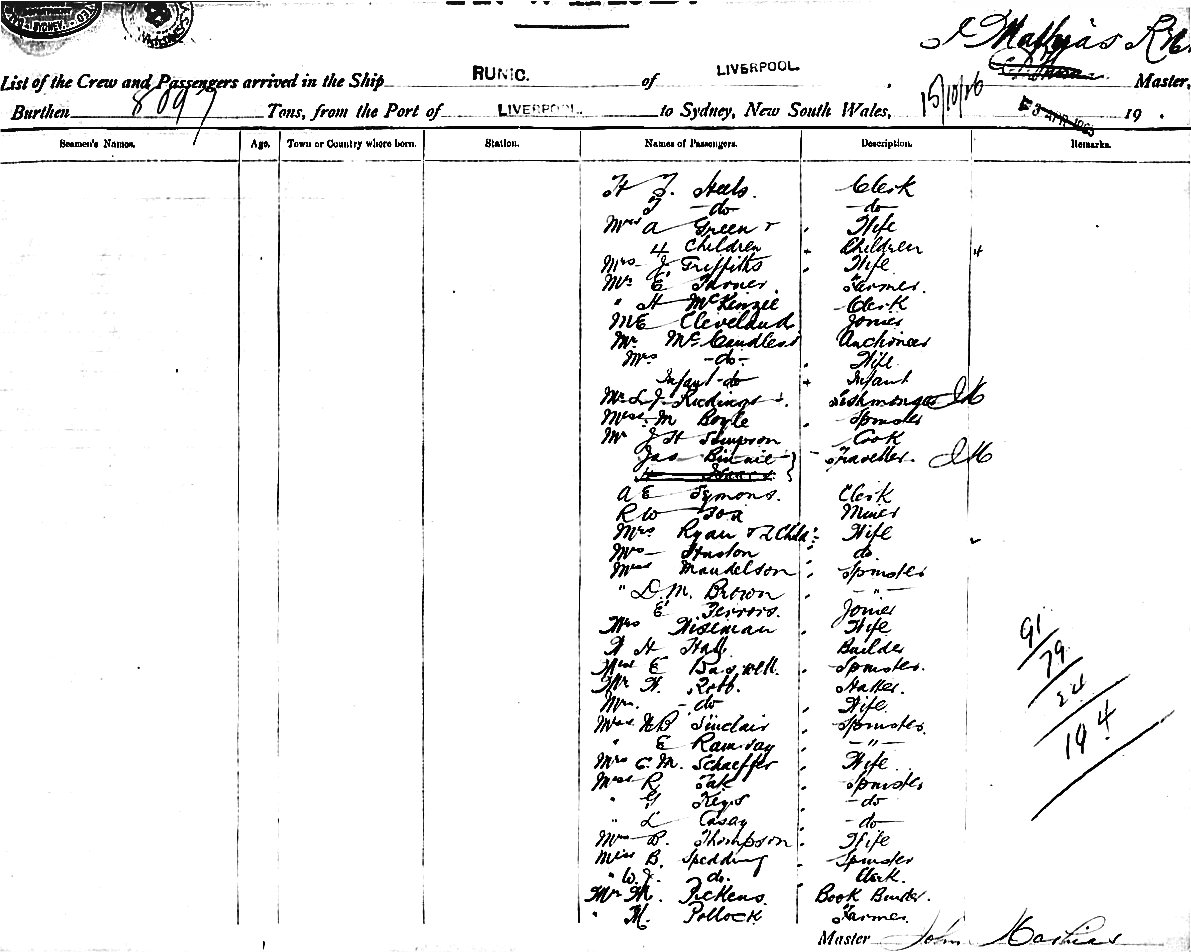 J Mathias R.N.R.
List of the Crew and Passengers arrived in the Ship RUNIC. of LIVERPOOL. Master,
Burthen 8097 Tons, from the Port of LIVERPOOL. to Sydney, New South Wales, 15/10/06 19 .
Seamen's Names. Age. Town or Country where born. Station. Names of Passengers. Description. Remarks.
H J. Heels. Clerk
J -do -do-
Mrs A Green & Wife
4 Children Children 4
Mrs J Griffiths Wife
Mr E Turner Farmer.
" H McKenzie Clerk
M E Cleveland Joiner
Mr McCandless
Mrs -do- Wife
Infant -do Infant
Mr L J. Ridings Fishmonger JM
Miss M Boyle Spinster
Mr J H Simpson Cook
Jas Binnie Traveller. JM
A E Symons. Clerk
R W Fox Miner
Mrs Ryan & 2 Child Wife
Mrs Huston do
Miss Mandelson Spinster
" D.M. Brown -"-
E Ferrors. Joiner
Mrs Wiseman Wife
H Hall Builder
Miss E Baswell Spinster.
Mr H. Robb. Hatter.
Mrs. -do Wife.
Miss N B Sinclair Spinster.
" E Ramsay -"-
Mrs C. M. Schaeffer Wife
Miss R Spinster
" G Keys -do
" L Casay -do-
Mrs B. Thompson Wife
Miss B. Spedding Spinster
" W. J. do. Clerk.
Mr M. Pickens Book Binder.
" M. Pollock Farmer.
91
79
24
194
Master John Mathias